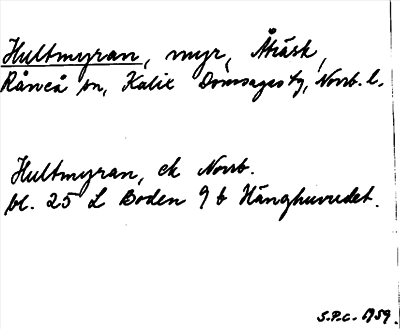 Hultmyran, myr, Åträsk,
Råneå sn, Kalix Domsagas tg, Norrb. l.
Hultmyran, ek Norrb.
bl. 25 L Boden 9 b Hänghuvudet.
S.P.C. 1959.